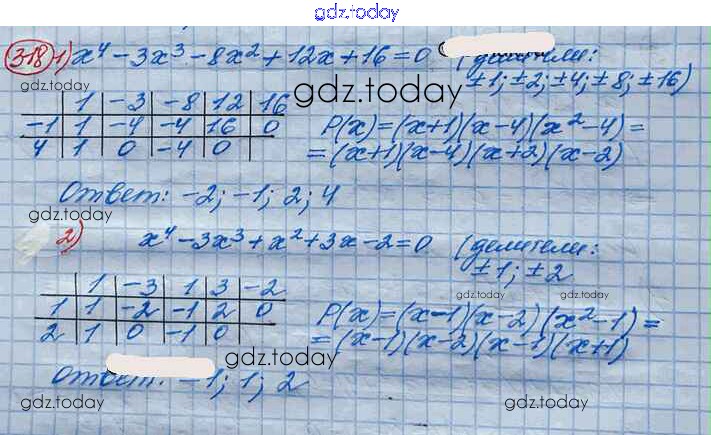 gdz.today
318 1) x⁴ - 3x³ - 8x² + 12x + 16 = 0 (делители:
±1; ±2; ±4; ±8; ±16)
gdz.today
gdz.today
1 -3 -8 12 16
-1 1 -4 -4 16 0
4 1 0 -4 0
P(x) = (x+1)(x-4)(x²-4) =
= (x+1)(x-4)(x+2)(x-2)
gdz.today
gdz.today
Ответ: -2; -1; 2; 4
gdz.today
gdz.today
2) x⁴ - 3x³ + x² + 3x - 2 = 0 (делители:
±1; ±2
1 -3 1 3 -2
1 1 -2 -1 2 0
2 1 0 -1 0
gdz.today
gdz.today
P(x) = (x-1)(x-2)(x²-1) =
= (x-1)(x-2)(x-1)(x+1)
gdz.today
Ответ: -1; 1; 2
gdz.today
gdz.today